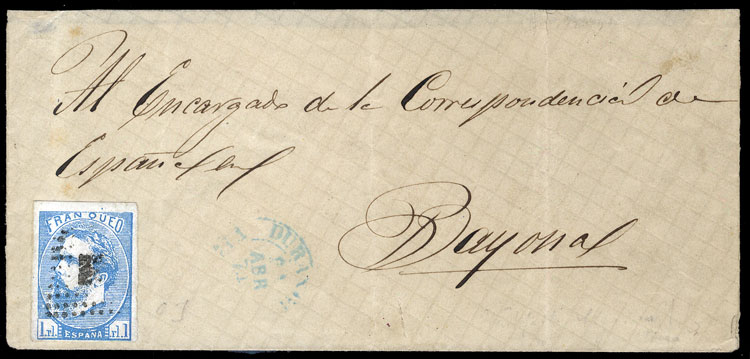 Al Encargado de la Correspondencia de
España en
Bayona
FRANQUEO
1 rl. ESPAÑA rl. 1
DURAN
ABR